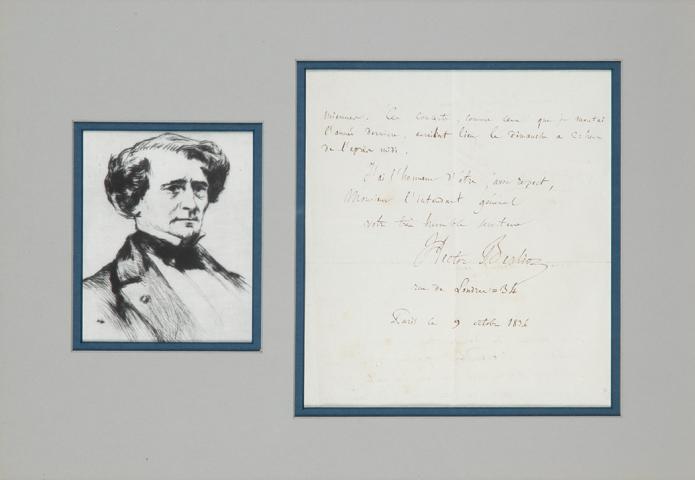 miennes. Ces concerts, comme ceux que je montai
l'année dernière, auraient lieu le dimanche à 2 heures
de l'après midi.
J'ai l'honneur d'être, avec respect,
Monsieur l'intendant général
votre très humble serviteur
Hector Berlioz
rue de Londres 34
Paris le 9 octobre 1834